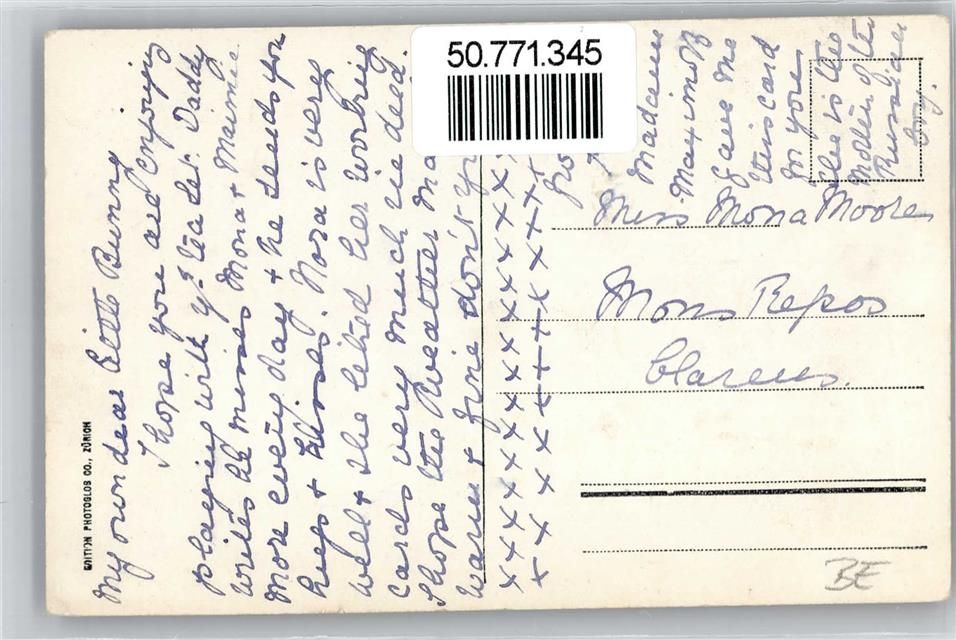 My own dear Little Bunny
I hope you are enjoying
playing with yr tea set. Daddy
writes he misses Mona & Maimee
more every day & he sends you
hugs & kisses. Nora is very
well & she liked her working
cards very much indeed.
I hope the weather
warm & fine don't
x x x x x x x x x x x x x
x x x x x x x x x x x x x
Madame
Maximoff
gave me
this card
for you
she is the
Mother of the
Russian
boy.
Miss Mona Moore
Mons Repos
Clarens.
BE
EDITION PHOTOGLOB CO., ZÜRICH
50.771.345